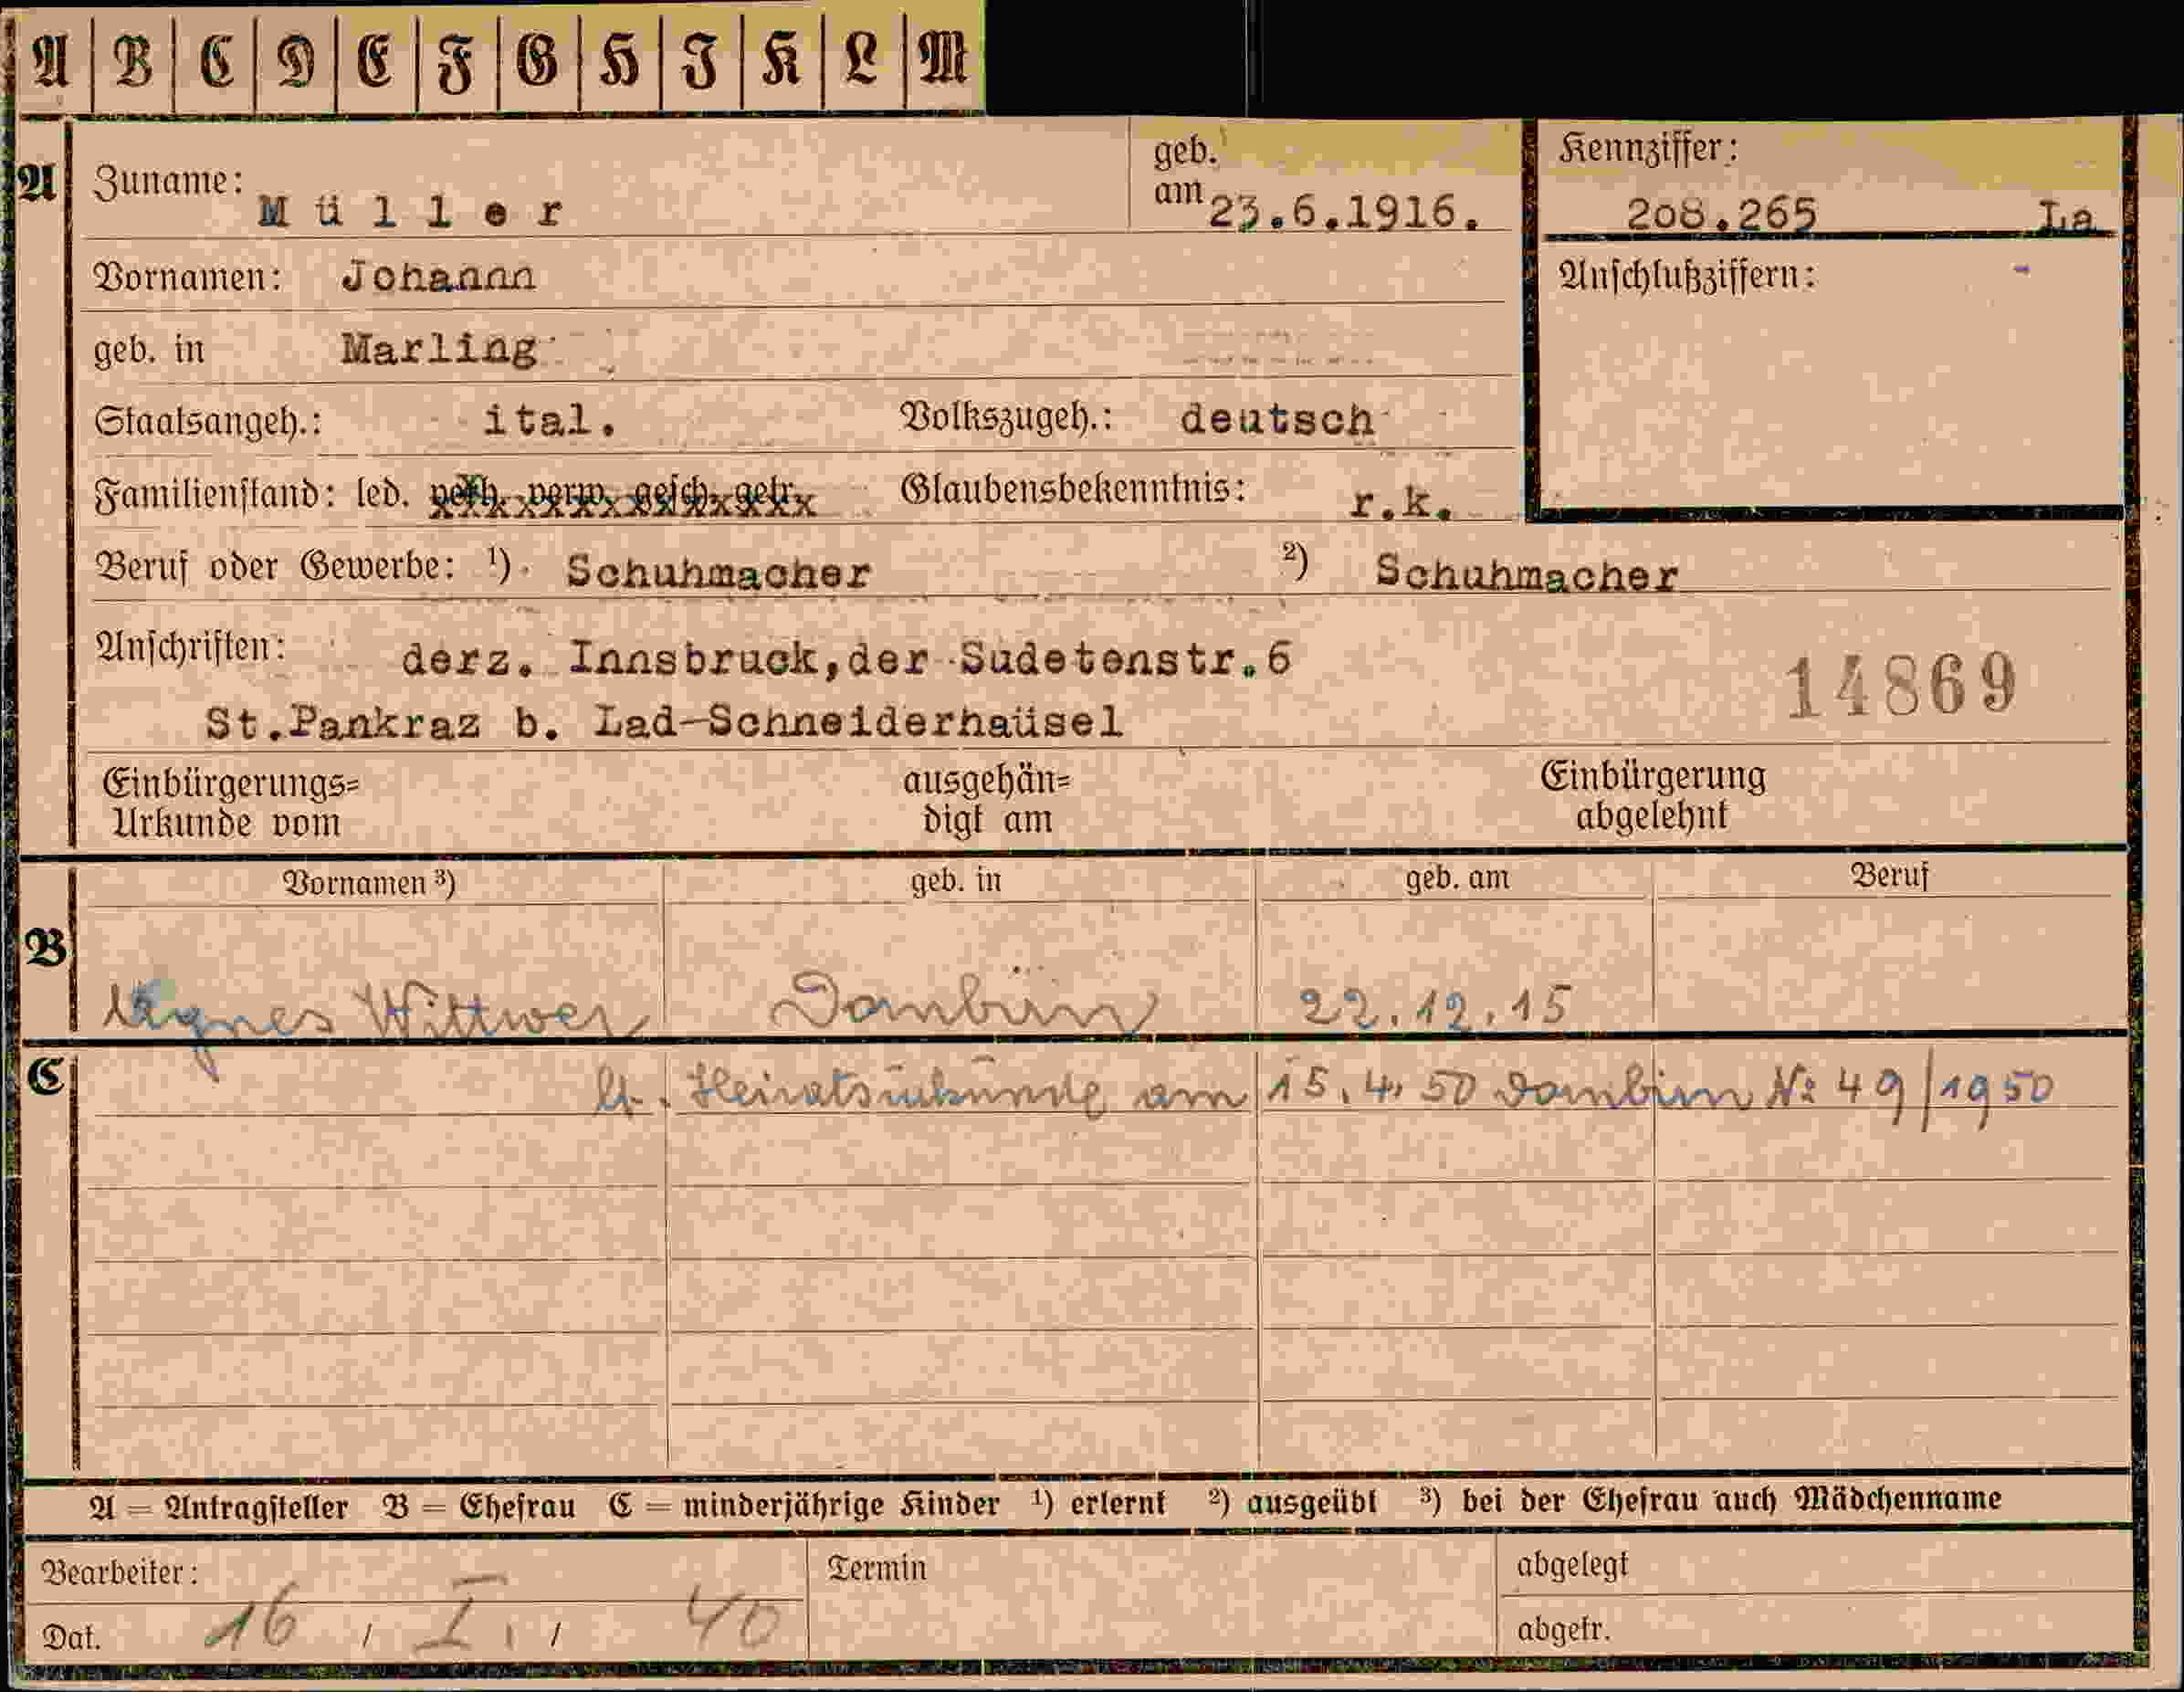 A B C D E F G H I K L M
A Zuname: Müller geb. am 23.6.1916. Kennziffer: 208.265 La
Vornamen: Johann Anschlußziffern: -
geb. in Marling
Staatsangeh.: ital. Volkszugeh.: deutsch
Familienstand: led. verh. verw. gesch. getr. Glaubensbekenntnis: r.k.
Beruf oder Gewerbe: ¹) Schuhmacher ²) Schuhmacher
Anschriften: derz. Innsbruck,der Sudetenstr.6
14869
St.Pankraz b. Lad-Schneiderhaüsel
Einbürgerungs= ausgehän= Einbürgerung
Urkunde vom digt am abgelehnt
Vornamen ³) geb. in geb. am Beruf
B Agnes Wittwer Dornbirn 22.12.15
C lt. Heiratsurkunde am 15.4.50 Dornbirn № 49/1950
A = Antragsteller B = Ehefrau C = minderjährige Kinder ¹) erlernt ²) ausgeübt ³) bei der Ehefrau auch Mädchenname
Bearbeiter: Termin abgelegt
Dat. 16 / I. / 40 abgetr.